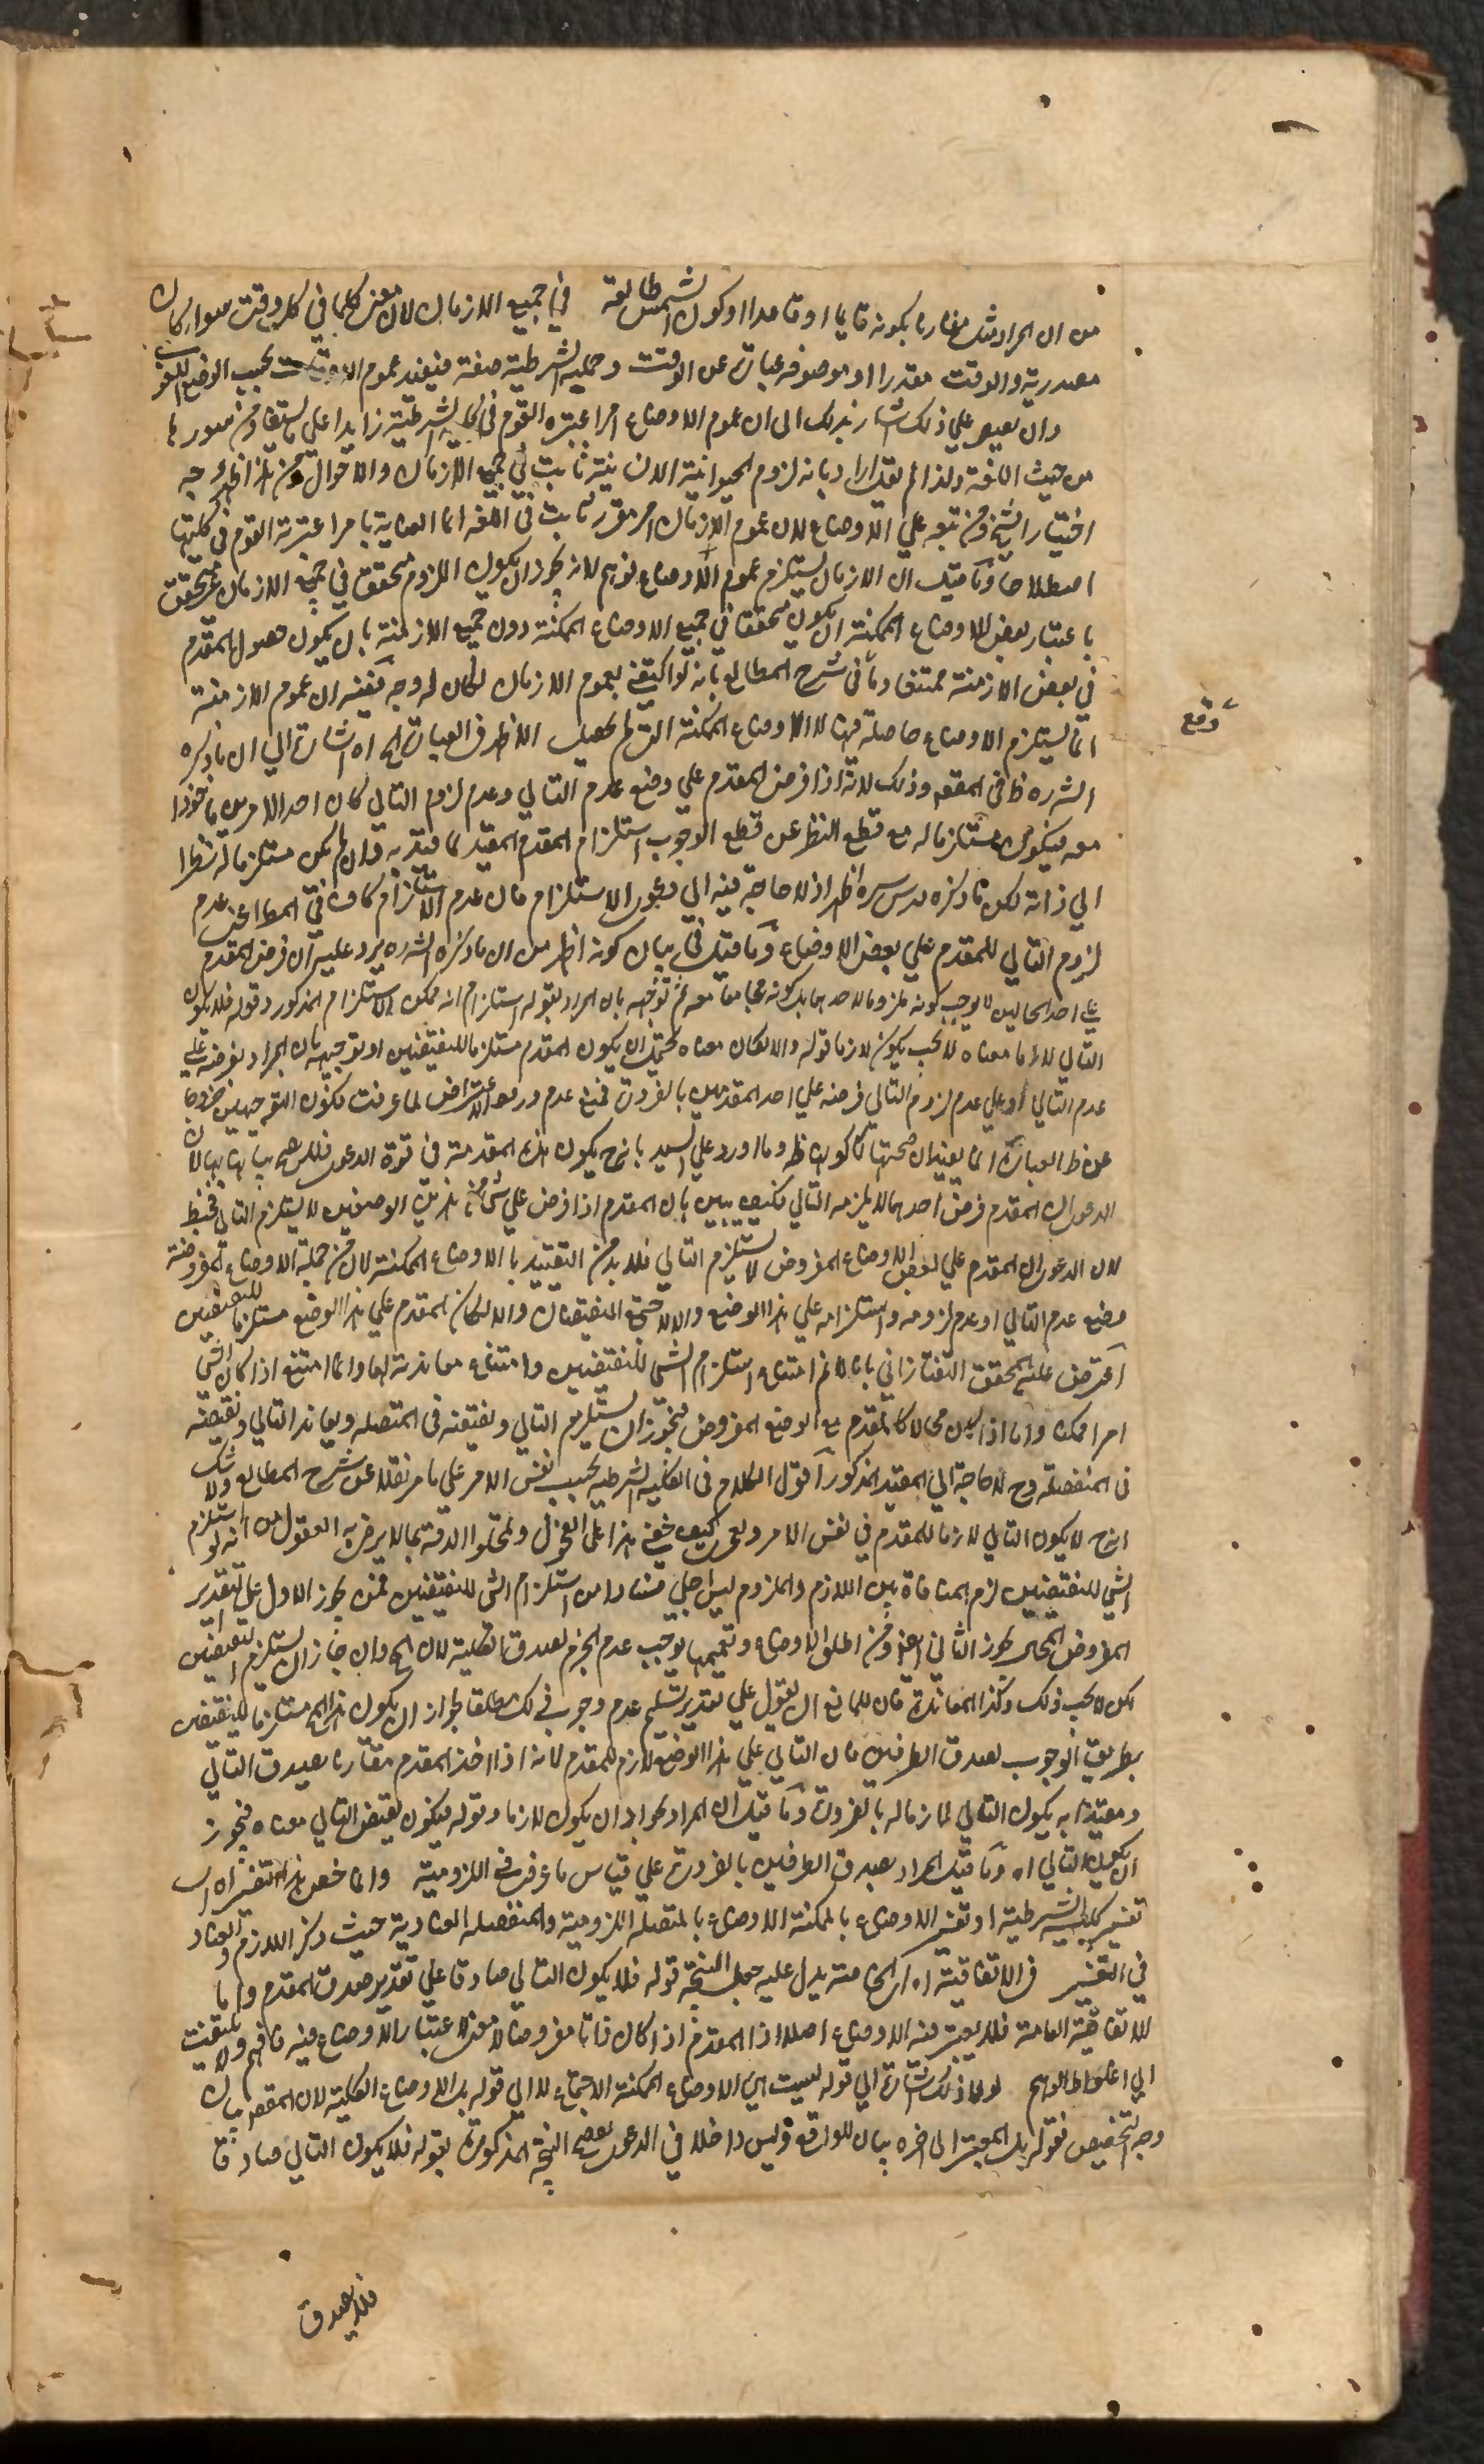 من ان المراد مثل مقارنا بكونه قايما او قاعدا او كون الشمس طالعة في جميع الازمان لان معنى كلما في كل وقت سواء كان
مصدرية والوقت مقدرا او موصوفه عبارة عن الوقت وجملة الشرطية صفة فيفيد عموم الاوقات بحسب الوضع اللغوي
وان بعد على ذلك اشار بذلك الى ان عموم الاوضاع امر اعتبره القوم في كلية الشرطية زايدا على ما يستفاد من سورها
من حيث اللغة ولذا لم يقل اراد بانه لزوم الحيوانية الانسانية ثابت في جميع الازمان والاحوال ومن هذا ظهر وجه
اختيار الشيخ ومن تبعه على الاوضاع لان عموم الازمان امر مقرر ثابت في اللغة انما العناية بامر اعتبرته القوم في كليتها
اصطلاحا وما قيل ان الازمان يستلزم عموم الاوضاع توهم لانه يجوز ان يكون اللزوم متحقق في جميع الازمان غير متحقق
باعتبار بعض الاوضاع الممكنة ان يكون متحققا في جميع الاوضاع الممكنة دون جميع الازمنة بان يكون حصول المقدم
في بعض الازمنة ممتنعا وما في شرح المطالع بانه لو اكتفى بعموم الازمان لكان له وجه ففيه ان عموم الازمنة
انما يستلزم الاوضاع حاصلة فيها لا الاوضاع الممكنة التي لم تحصل الاظهر في العبارة اه اشارة الى ان ما ذكره
الشره ظ في المقصود وذلك لانه اذا فرض المقدم على وضع عدم التالي وعدم لزوم التالي كان احد الامرين ماخوذا
معه فيكون مستلزما له مع قطع النظر عن قطع الوجوب استلزام المقدم المقيد لما قيد به وان لم يكن مستلزما له نظرا
الى ذاته لكن ما ذكره قدس سره اظهر اذ لا حاجة فيه الى دعوى الاستلزام فان عدم الاستلزام كاف في المطا اعني عدم
لزوم التالي للمقدم على بعض الاوضاع وما قيل في بيان كونه اظهر من ان ما ذكره الشره يرد عليه ان فرض المقدم
على احد الحالين لا يوجب كونه ملزوما لاحدهما بل كونه مجامعا معه ثم توجيهه بان المراد بقوله استلزام انه ممكن الاستلزام المذكور وقوله فلا يكون
التالي لازما معناه لا يجب يكون لازما قوله والا لكان معناه يحتمل ان يكون المقدم مستلزما للنقيضين او توجيهه بان المراد بفرضه على
عدم التالي او على عدم لزوم التالي فرضه على احد المقدمين بالضرورة فمع عدم ورود الاعتراض لما عرفت بكون التوجيهين خروجا
عن ظ العبارة انما يفيد ان صحتها لا كونها ظ وما اورد على السيد بانه ح يكون هذه المقدمة في قوة الدعوى فلا يصح بيانها بها لان
الدعوى ان المقدم فرض احدهما لا يلزمه التالي فكيف يبين بان المقدم اذا فرض على شئ من هذين الوصفين لا يستلزم التالي فخبط
لان الدعوى ان المقدم على بعض الاوضاع المفروض لا يستلزم التالي فلا بد من التقييد بالاوضاع الممكنة لان من جملة الاوضاع المفروضة
وضع عدم التالي او عدم لزومه واستلزامه على هذا الوضع والا لاجتمع النقيضان والا لكان المقدم على هذا الوضع مستلزما للنقيضين
اعترض عليه المحقق التفتازاني بانا لا نم امتناع استلزام الشئ للنقيضين وامتناع معاندته لهما وانما امتنع اذا كان الشئ
امرا ممكنا واما اذا كان محالا كالمقدم مع الوضع المفروض فيجوز ان يستلزم التالي ونقيضه في المتصلة ويعاند التالي ونقيضه
في المنفصلة وح لا حاجة الى المقيد المذكور اقول الكلام في الكلية الشرطية بحسب نفس الامر على ما مر نقلا عن شرح المطالع ولا شك
انه ح لا يكون التالي لازما للمقدم في نفس الامر وبعمرى كيف خفي هذا على الفحول وتمحلوا الدقة بما لا يرضى به العقول من انه لو استلزم
الشئ للنقيضين لزم المنافاة بين اللازم والملزوم ليس اجلى فسادا من استلزام الشئ للنقيضين فمن يجوز الاول على التقدير
المفروض المحال يجوز الثاني ايضا ومن اطلق الاوضاع وتعميمها يوجب عدم الجزم بصدق الكلية لان المح وان جاز ان يستلزم النقيضين
لكن لا يجب ذلك وكذا المعاندة فان للمانع ان يقول على تقدير تسليم عدم وجوب ذلك مطلقا يجوز ان يكون هذا المح مستلزما للنقيضين
بطريق الوجوب بصدق الطرفين فان التالي على هذا الوضع لازم للمقدم لانه اذا اخذ المقدم مقارنا بصدق التالي
ومقيدا به يكون التالي لازما له بالضرورة وما قيل ان المراد بجواز ان يكون لازما وقوله فيكون نقيض التالي معناه فيجوز
ان يكون التالي اه وما قيل المراد بصدق الطرفين بالضرورة على قياس ما عرفت في اللزومية وانما خص هذا التفسير اه اي
تفسير كلية الشرطية او تفسير الاوضاع بالممكنة الاوضاع بالمتصلة اللزومية والمنفصلة العنادية حيث ذكر اللازم والعناد
في التفسير في الاتفاقية اه اي الخاصة يدل عليه جعل النتيجة قوله فلا يكون التالي صادقا على تقدير صدق المقدم واما
الاتفاقية العامة فلا يعتبر فيه الاوضاع اصلا اذ المقدم اذا كان فاتا مفروضا لا معنى لاعتبار الاوضاع فيه فافهم ولا تلتفت
الى اغلوط الوهم لولا ذلك اشارة الى قوله ليست هي الاوضاع الممكنة الاجتماع لا الى قوله بل الاوضاع الكلية لان المقصود بيان
وجه التخصيص فقوله بل المعتبر الى اخره بيان للواقع وليس داخلا في الدعوى بعض النتيجة المذكورة بقوله فلا يكون التالي صادقا
وقع
فلا يصدق